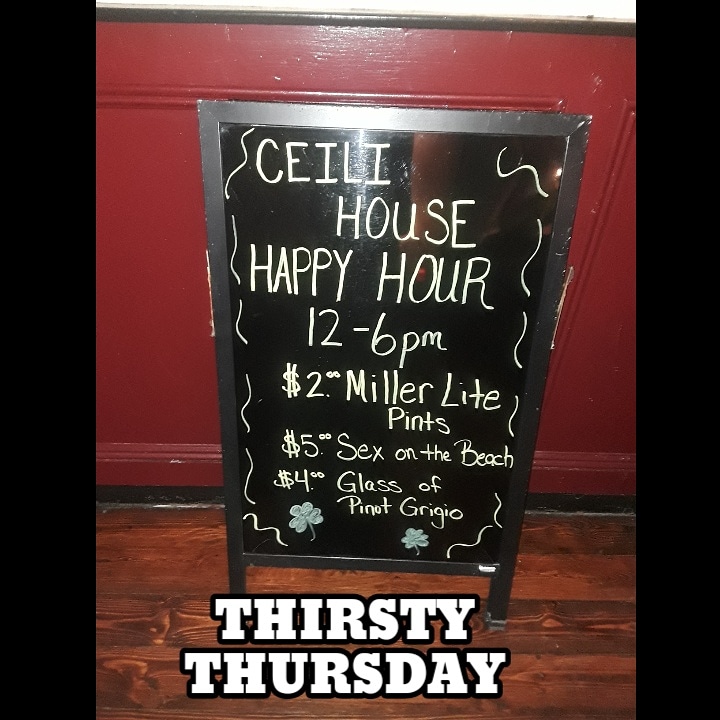 CEILI
HOUSE
HAPPY HOUR
12-6pm
$2.00 Miller Lite
Pints
$5.00 Sex on the Beach
$4.00 Glass of
Pinot Grigio
THIRSTY
THURSDAY